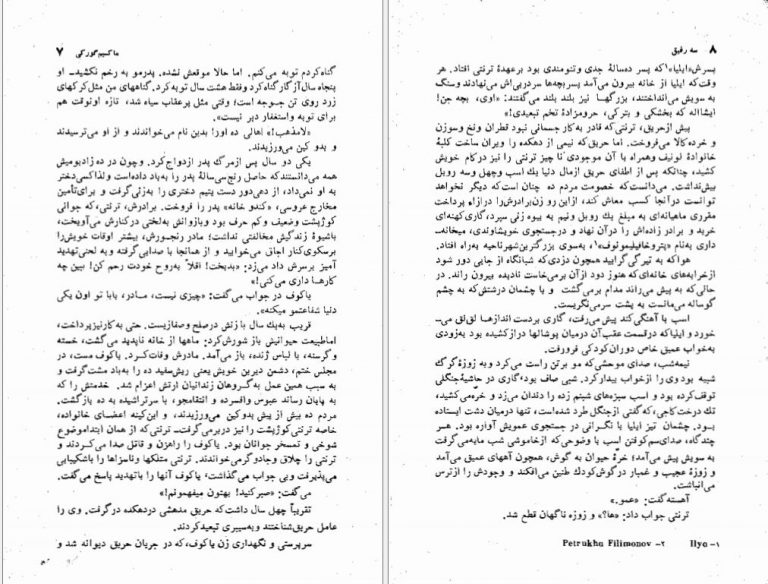 ماکسیم گورکی ۷
گناه کردم توبه می‌کنم. اما حالا موقعش نشده. پدرمو به رخم نکشید ــ او
پنجاه سال آزگار گناه کرد و فقط هشت سال توبه کرد. گناههای من مثل کرکهای
زرد روی تن جوجه است؛ وقتی مثل پرعقاب سیاه شد، تازه اونوقت هم
برای توبه واستغفار دیر نیست.»
«لامذهب!» اهالی ده اورا بدین نام می‌خواندند و از او می‌ترسیدند
و بدو کین می‌ورزیدند.
یکی دو سال پس از مرگ پدر ازدواج کرد. وچون در ده زادبومیش
همه می‌دانستند که حاصل رنج سی‌سالهٔ پدر را به باد داده است ولذا کسی دختر
به او نمی‌داد، از دهی دور دست یتیم دختری را به زنی گرفت و برای تأمین
مخارج عروسی، «کندو خانه» پدر را فروخت. برادرش، ترنتی، که جوانی
کوژپشت وضعیف و کم حرف بود و بازوانش به لختی در کنارش می‌آویخت،
باشیوهٔ زندگیش مخالفتی نداشت؛ مادر رنجورش، بیشتر اوقات خویش را
برسکوی کنار اجاق می‌خوابید و از همانجا با صدایی گرفته و به لحنی تهدید
آمیز برسرش داد می‌زد: «بدبخت! اقلاً به روح خودت رحم کن! ببین چه
کارها داری می‌کنی!»
یاکوف در جواب می‌گفت: «چیزی نیست، مادر، بابا تو اون یکی
دنیا شفاعتمو میکنه.»
قریب به یک سال با زنش درصلح وصفا زیست. حتی به کار نیز پرداخت،
اما طبیعت حیوانیش باز شورش کرد: ماهها از خانه ناپدید می‌گشت، خسته
و گرسنه، با لباس ژنده، باز می‌آمد. مادرش وفات کرد. یاکوف مست، در
مجلس ختم، دشمن دیرین خویش یعنی ریش‌سفید ده را به باد مشت گرفت و
به سبب همین عمل به گروهان زندانیان ارتش اعزام شد. خدمتش را که
به پایان رساند عبوس وافسرده و انتقامجو، با سرتراشیده به ده بازگشت.
مردم ده بیش از پیش بدو کین می‌ورزیدند، و این کینه اعضای خانواده،
خاصه ترنتی کوژپشت را نیز دربرمی‌گرفت. ترنتی که از همان ابتدا موضوع
شوخی و تمسخر جوانان بود. یاکوف را راهزن و قاتل صدا می‌کردند و
ترنتی را چلاق و جادوگر می‌خواندند. ترنتی متلکها و ناسزاها را باشکیبایی
می‌پذیرفت و بی جواب می‌گذاشت، یاکوف آنها را با تهدید پاسخ می‌گفت.
می‌گفت: «صبر کنید! بهتون میفهمونم!»
تقریباً چهل سال داشت که حریق مدهشی دردهکده در گرفت. وی را
عامل حریق شناختند و به سیبری تبعید کردند.
سرپرستی و نگهداری زن یاکوف، که در جریان حریق دیوانه شد و
۸ سه رفیق
پسرش «ایلیا»۱ که پسر ده‌سالهٔ جدی و تنومندی بود برعهدهٔ ترنتی افتاد. هر
وقت که ایلیا از خانه بیرون می‌آمد پسربچه‌ها سر در پی اش می‌نهادند و سنگ
به سویش می‌انداختند، بزرگها نیز بلند بلند می‌گفتند: «اوی، بچه جن!
ایشااله که بخشکی و بترکی، حرومزاده تخم تبعیدی!»
پیش از حریق، ترنتی که قادر به کار جسمانی نبود قطران و نخ وسوزن
و خرده کالا می‌فروخت. اما حریق که نیمی از دهکده را ویران ساخت کلبهٔ
خانوادهٔ لونیف وهمراه با آن موجودی نا چیز ترنتی را نیز در کام خویش
کشید، چنانکه پس از اطفای حریق از مال دنیا یک اسب وچهل وسه روبل
بیش نداشت. می‌دانست که خصومت مردم ده چنان است که دیگر نخواهد
توانست در آنجا کسب معاش کند، از این رو زن برادرش را در ازاء پرداخت
مقرری ماهیانه‌ای به مبلغ یک روبل ونیم به بیوه زنی سپرد، گاری کهنه‌ای
خرید و برادر زاده‌اش را در آن نهاد و درجستجوی خویشاوندی، میخانه‌ـ
داری به نام «پتروخافیلیمونوف»۲، به‌سوی بزرگترین شهر ناحیه به راه افتاد.
هوا که به تیرگی گرایید همچون دزدی که شبانگاه از جایی دور شود
از خرابه‌های خانه‌ای که هنوز دود از آن برمی‌خاست نادیده بیرون راند. در
حالی که به پیش می‌راند مدام برمی‌گشت و با چشمان درشتش که به چشم
گوساله می‌مانست به پشت سر می‌نگریست.
اسب با آهنگی کند پیش می‌رفت، گاری بردست اندازها لق‌لق می‌ـ
خورد و ایلیا که درقسمت عقب آن درمیان پوشالها دراز کشیده بود به زودی
به خواب عمیق خاص دوران کودکی فرو رفت.
نیمه‌شب، صدای موحشی که مو برتن راست می‌کرد و به زوزهٔ گرگ
شبیه بود وی را از خواب بیدار کرد. شبی صاف بود، گاری در حاشیهٔ جنگلی
توقف کرده بود و اسب سبزه‌های شبنم زده را دندان می‌زد و خره می‌کشید،
تک درخت کاجی، که گفتی از جنگل طرد شده است، تنها درمیان دشت ایستاده
بود. چشمان تیز ایلیا با نگرانی در جستجوی عمویش آواره بود. هر
چندگاه، صدای سم کوفتن اسب با وضوحی که از خاموشی شب مایه می‌گرفت
به سویش پیش می‌آمد؛ خرهٔ حیوان به گوش، همچون آههای عمیق می‌آمد
و زوزهٔ عجیب و غمبار در گوش کودک طنین می‌افکند و وجودش را از ترس
می‌انباشت.
آهسته گفت: «عمو.»
ترنتی جواب داد: «ها؟» و زوزه ناگهان قطع شد.
۱- Ilya ۲- Petrukha Filimonov